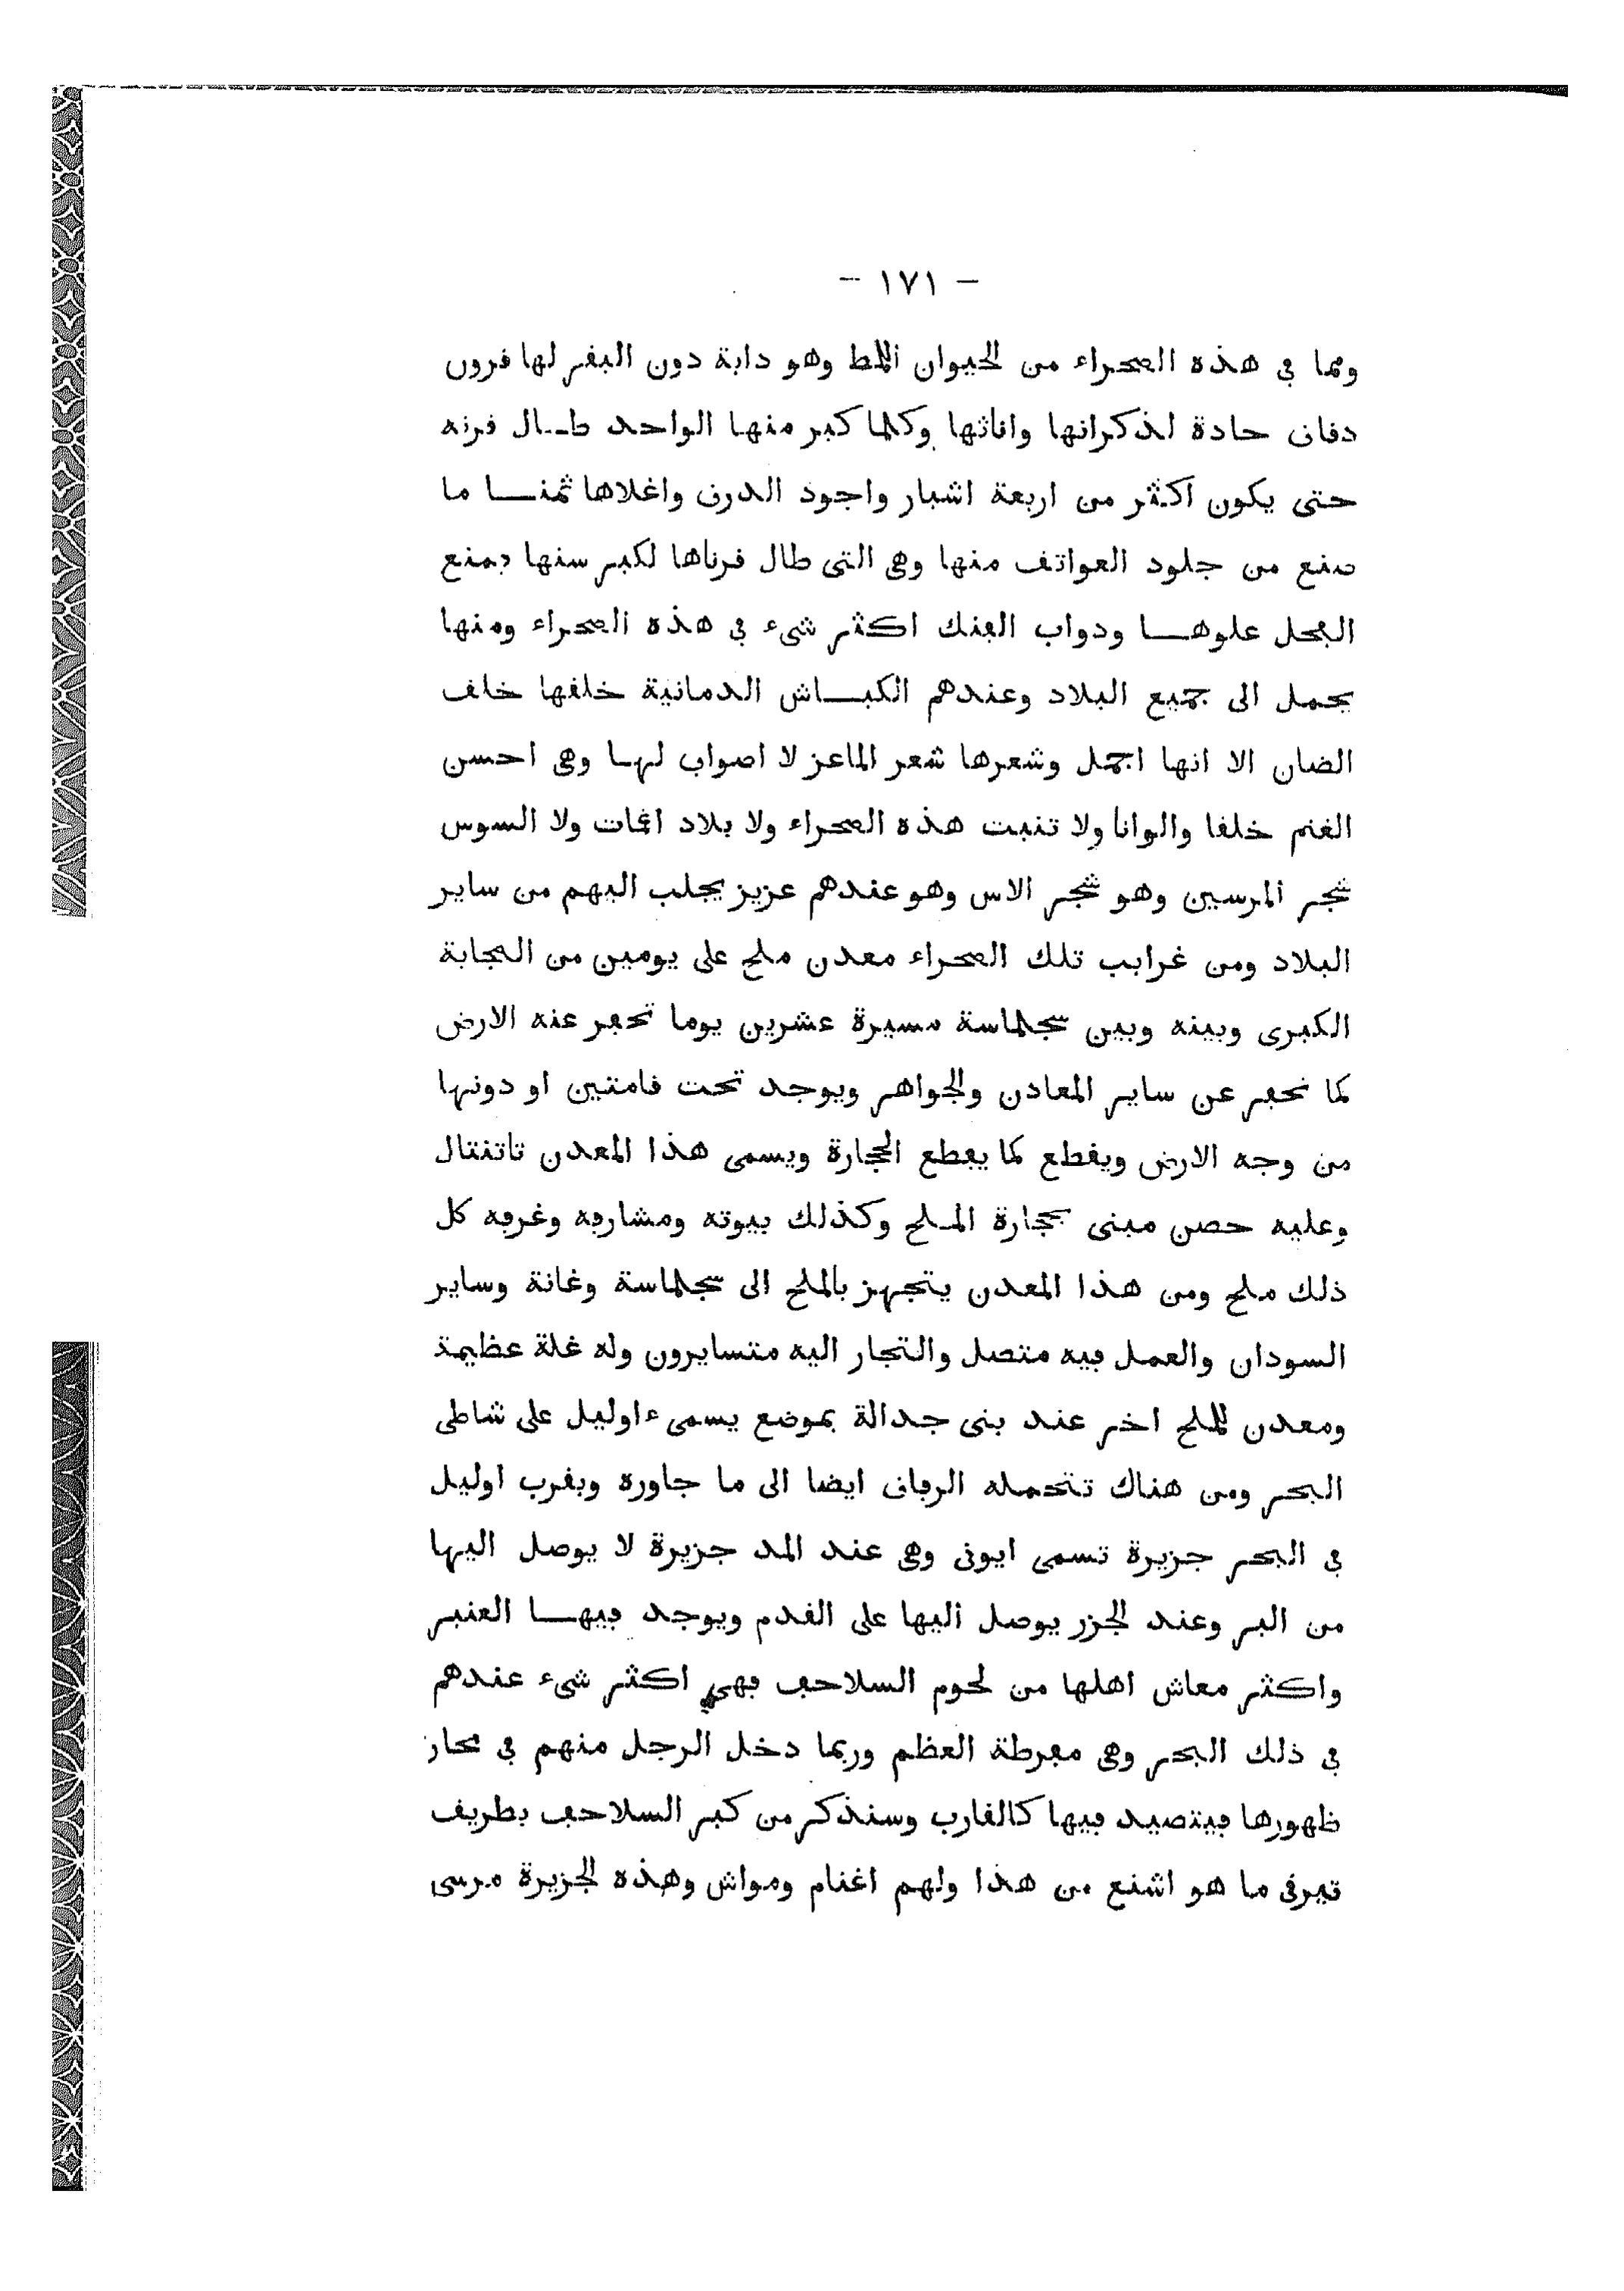 - ١٧١ -
ومما ڢى هذه الصحراء من الحيوان اللمط وهو دابة دون البڧر لها ڧرون
دڧاڧ حادة لذكرانها واناثها وكلما كبر منها الواحد طـال ڧرنه
حتى يكون اكثر من اربعة اشبار واجود الدرڧ واغلاها ثمنــا ما
صنع من جلود العواتڧ منها وهى التى طال ڧرناها لكبر سنها ڢمنع
الڢحل علوهــا ودواب الڢنك اكثر شىء ڢى هذه الصحراء ومنها
يحمل الى جميع البلاد وعندهم الكبــاش الدمانية خلڧها خلڧ
الضان الا انها اجمل وشعرها شعر الماعز لا اصواب لهـا وهى احسن
الغنم خلڧا والوانا ولا تنبت هذه الصحراء ولا بلاد اغمات ولا السوس
شجر المرسين وهو شجر الاس وهو عندهم عزيز يجلب اليهم من ساير
البلاد ومن غرايب تلك الصحراء معدن ملح على يومين من المجابة
الكبرى وبينه وبين سجلماسة مسيرة عشرين يوما تحڢر عنه الارض
كما تحڢر عن ساير المعادن والجواهر ويوجد تحت ڧامتين او دونها
من وجه الارض ويڧطع كما يڧطع الحجارة ويسمى هذا المعدن تاتنتال
وعليه حصن مبنى بحجارة الملح وكذلك بيوته ومشارڢه وغرڢه كل
ذلك ملح ومن هذا المعدن يتجهز بالملح الى سجلماسة وغانة وساير
السودان والعمل ڢيه متصل والتجار اليه متسايرون وله غلة عظيمة
ومعدن للملح اخر عند بنى جدالة بموضع يسمى ءاوليل على شاطى
البحر ومن هناك تتحمله الرڢاڧ ايضا الى ما جاوره وبڧرب اوليل
ڢى البحر جزيرة تسمى ايونى وهى عند المد جزيرة لا يوصل اليها
من البر وعند الجزر يوصل اليها على الڧدم ويوجد ڢيهــا العنبر
واكثر معاش اهلها من لحوم السلاحڢ ڢهى اكثر شىء عندهم
ڢى ذلك البحر وهى مڢرطة العظم وربما دخل الرجل منهم ڢى محار
ظهورها ڢيتصيد ڢيها كالڧارب وسنذكر من كبر السلاحڢ بطريڧ
تيرڧى ما هو اشنع من هذا ولهم اغنام ومواش وهذه الجزيرة مرسى